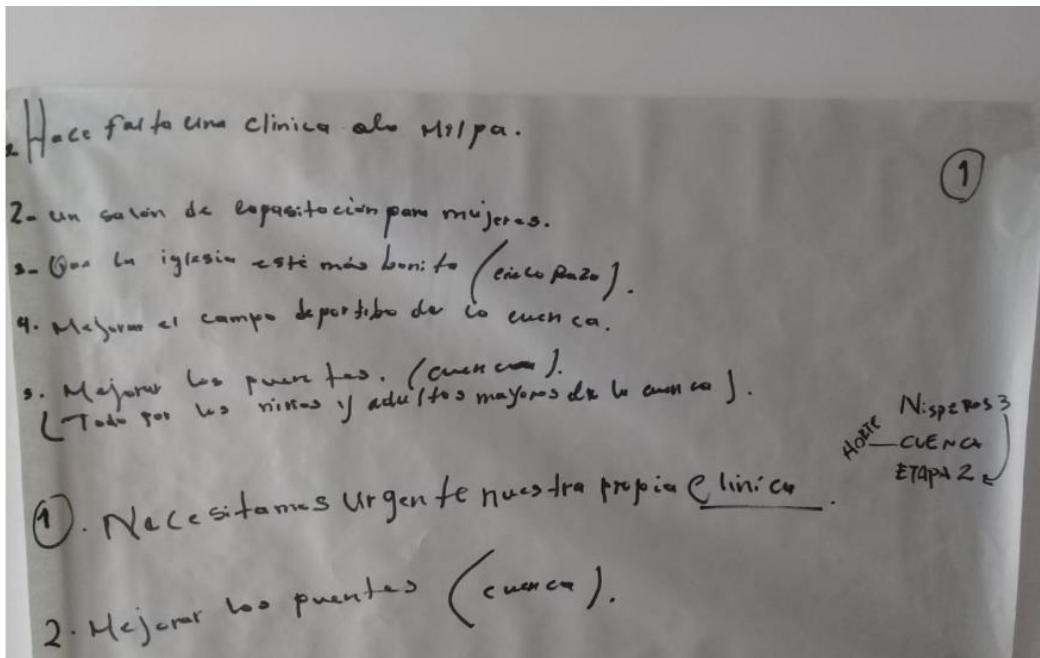 Hace falta una clinica
①
2- un salón de para mujeres.
3- Que la iglesia esté más bonito
4. Mejorar el campo deportibo de la cuenca.
5. Mejorar los puentes. (cuenca).
(Todo por los niños y adultos mayores de la cuenca).
Nisperos 3
CUENCA
ETAPA 2
①. Necesitamos Urgente nuestra propia Clinica.
2. Mejorar los puentes (cuenca).